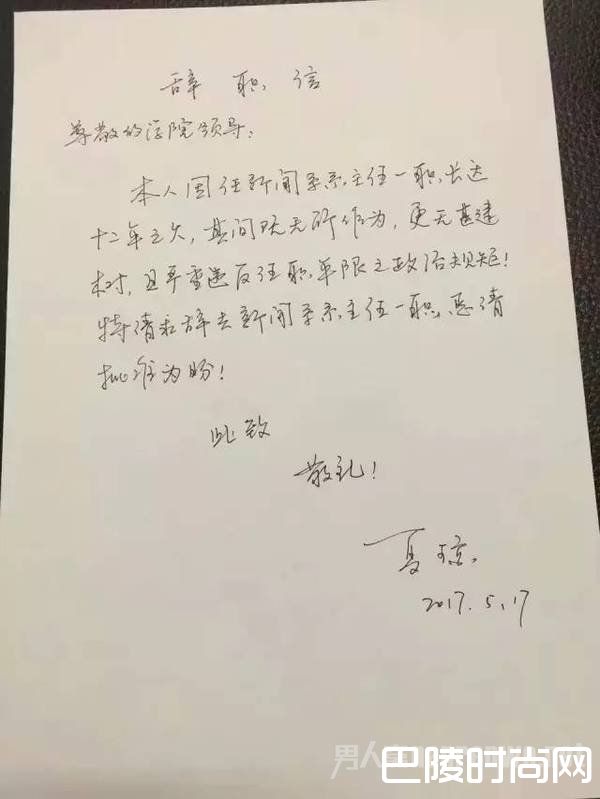 辞职信
尊敬的学院领导：
本人因任新闻系系主任一职长达
十二年之久，其间既无所作为，更无甚建
树，且严重违反任职年限之政治规矩！
特请求辞去新闻系系主任一职，恳请
批准为盼！
此致
敬礼！
夏琼
2017.5.17
男人
巴陵时尚网